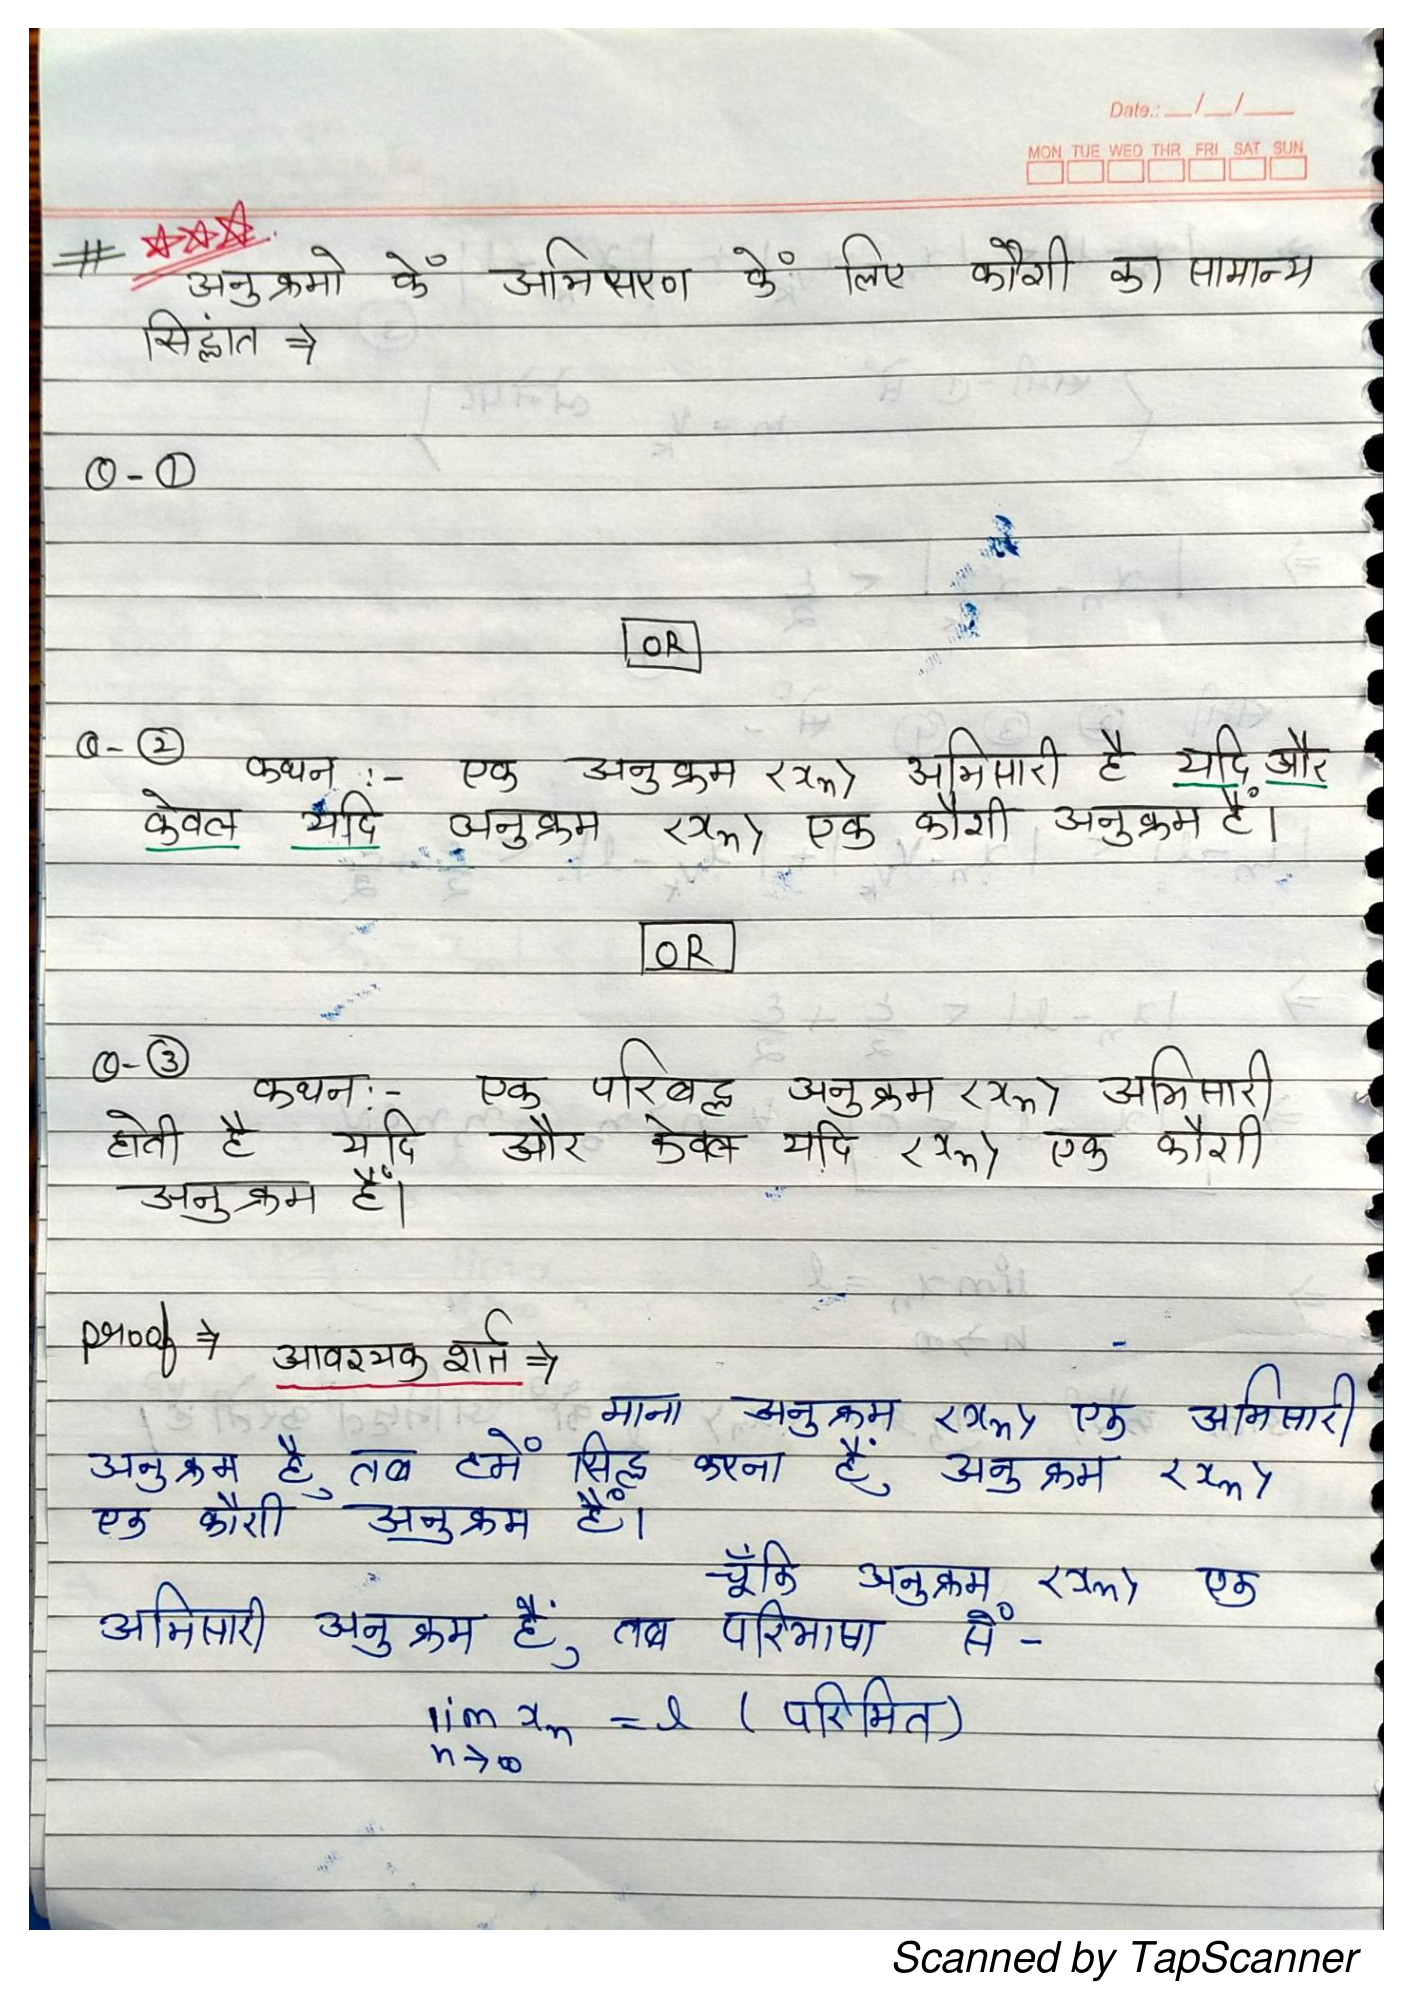 Date.: __/__/___
MON TUE WED THR FRI SAT SUN
# ☆☆☆
अनुक्रमो कें अभिसरण कें लिए कौशी का सामान्य
सिद्धांत ⇒
Q - ①
OR
Q - ② कथन :- एक अनुक्रम <xₙ> अभिसारी है यदि और
केवल यदि अनुक्रम <xₙ> एक कौशी अनुक्रम हैं।
OR
Q - ③ कथन :- एक परिबद्ध अनुक्रम <xₙ> अभिसारी
होती है यदि और केवल यदि <xₙ> एक कौशी
अनुक्रम हैं।
Proof ⇒ आवश्यक शर्त ⇒
माना अनुक्रम <xₙ> एक अभिसारी
अनुक्रम है, तब हमें सिद्ध करना हैं, अनुक्रम <xₙ>
एक कौशी अनुक्रम हैं।
चूँकि अनुक्रम <xₙ> एक
अभिसारी अनुक्रम हैं, तब परिभाषा सें -
lim xₙ = l ( परिमित)
n→∞
Scanned by TapScanner